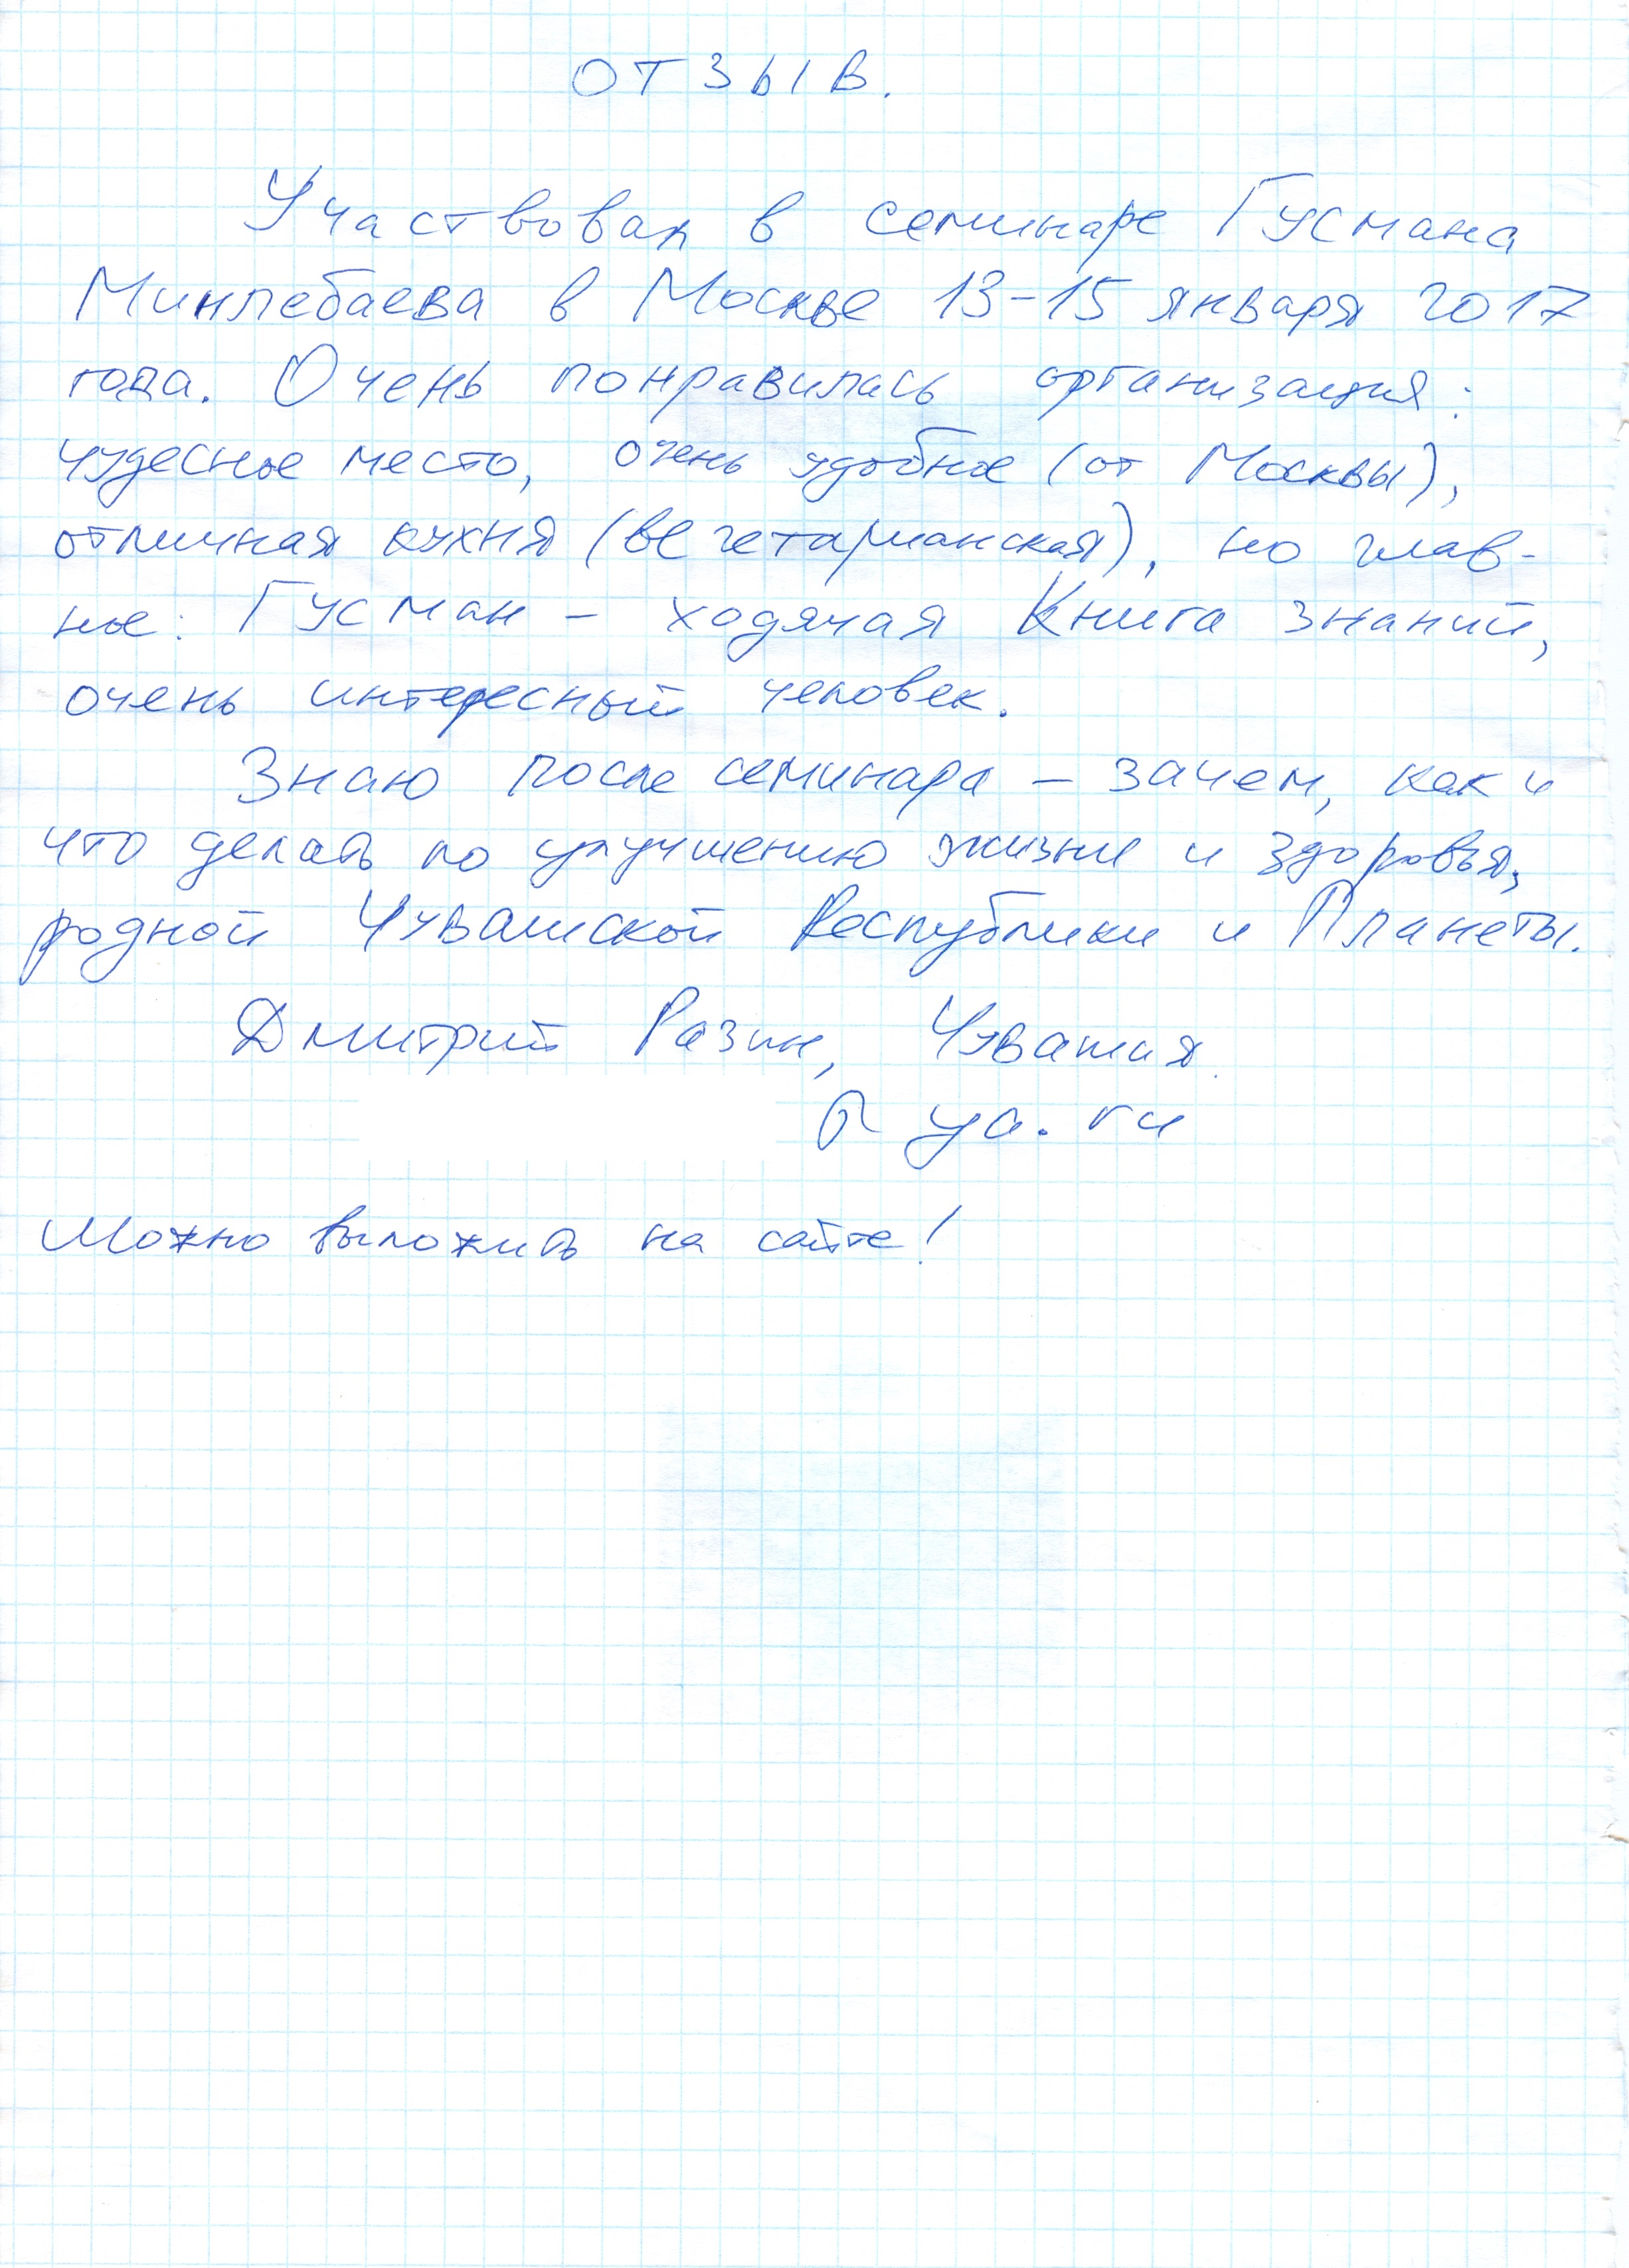 ОТЗЫВ.
Участвовал в семинаре Гусмана
Минлебаева в Москве 13-15 января 2017
года. Очень понравилась организация:
чудесное место, очень удобное (от Москвы),
отличная кухня (вегетарианская), но глав-
ное: Гусман - ходячая Книга знаний,
очень интересный человек.
Знаю после семинара - зачем, как и
что делать по улучшению жизни и здоровья,
родной Чувашской Республики и Планеты.
Дмитрий Разин, Чувашия.
@ ya.ru
Можно выложить на сайте!